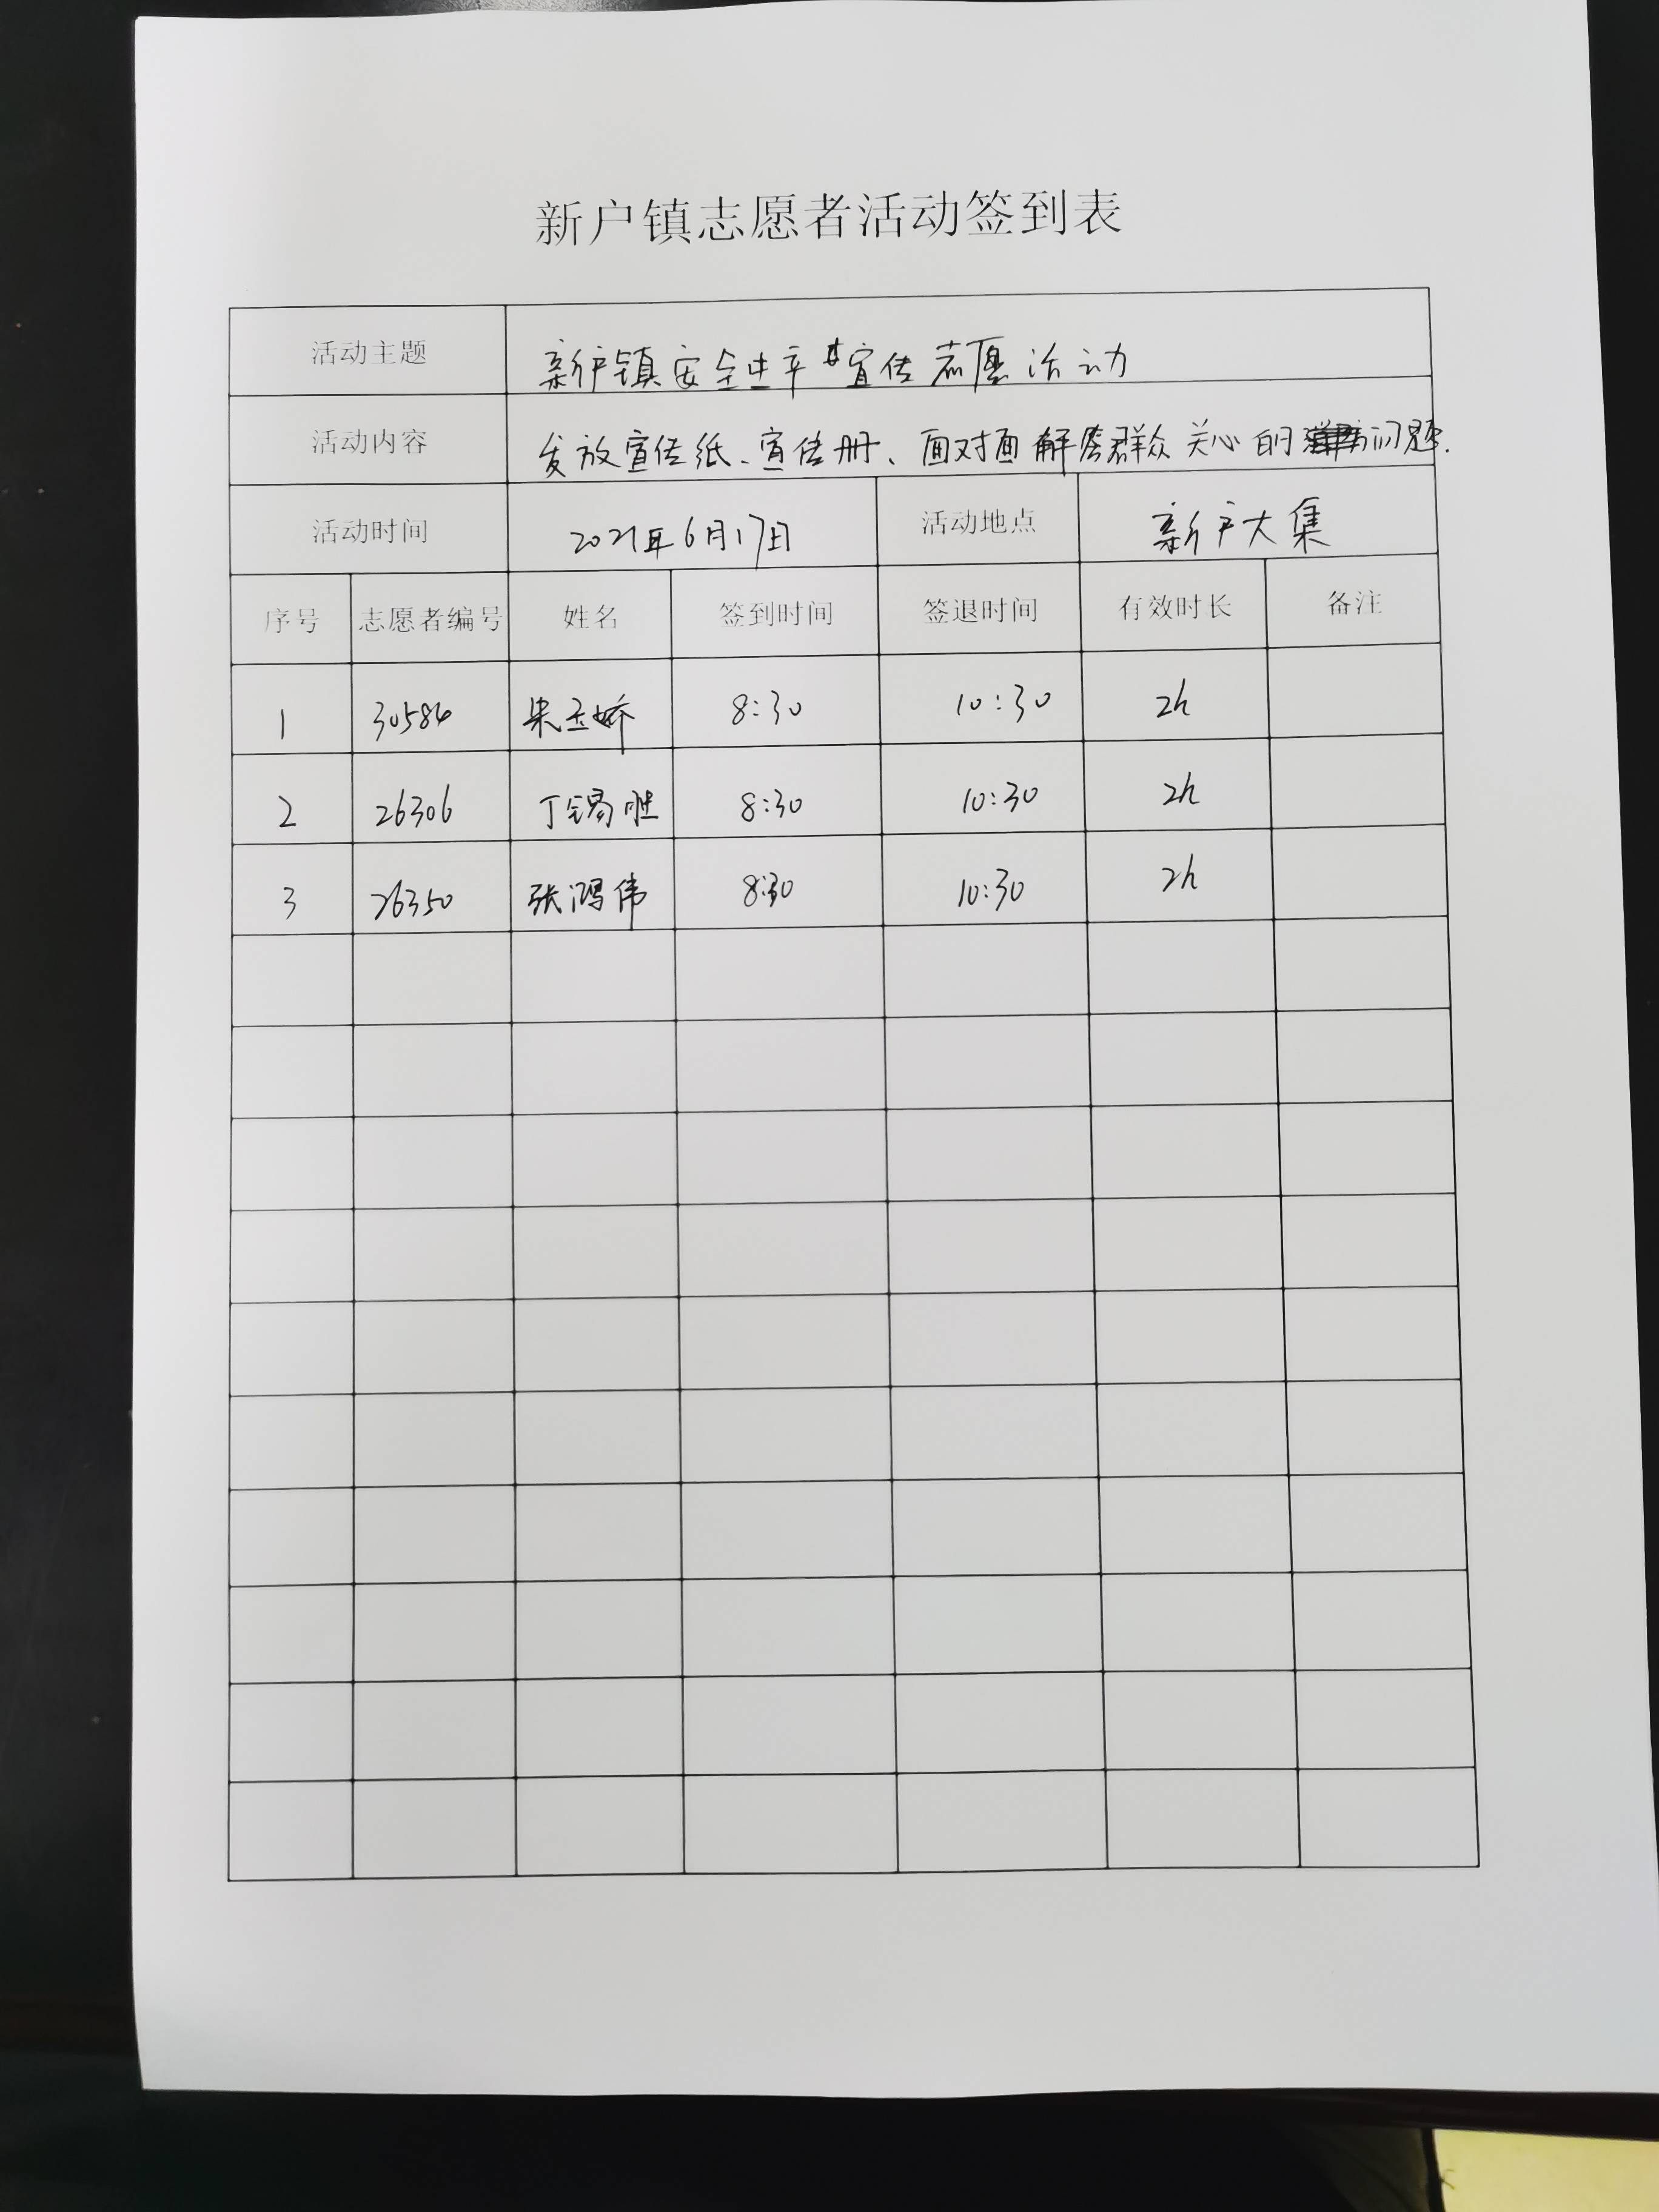 新户镇志愿者活动签到表
活动主题 新户镇安全生产宣传志愿活动
活动内容 发放宣传纸、宣传册、面对面解答群众关心的问题.
活动时间 2021年6月17日 活动地点 新户大集
序号 志愿者编号 姓名 签到时间 签退时间 有效时长 备注
1 30584 玉娇 8:30 10:30 2h
2 26306 丁锡胜 8:30 10:30 2h
3 26350 张鸿伟 8:30 10:30 2h